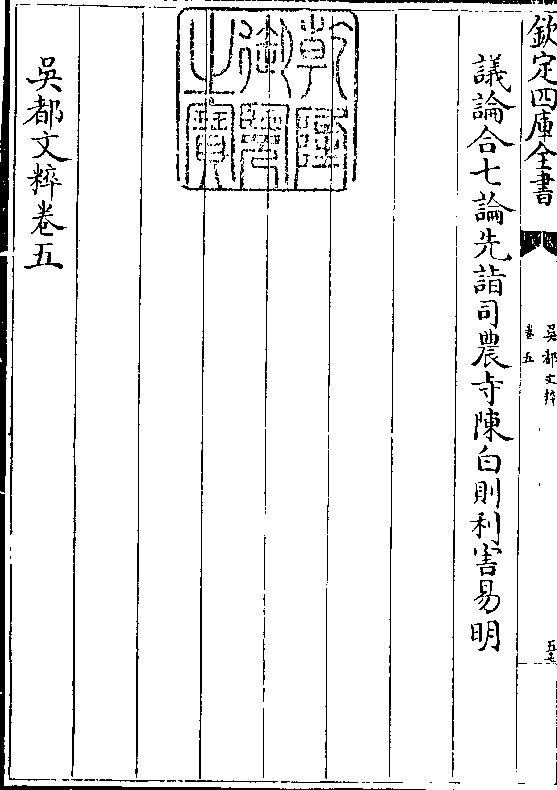 欽定四庫全書
吳都文粹
卷五
議論合七論先詣司農寺陳白則利害易明
乾隆
御覽
之寶
吳都文粹卷五